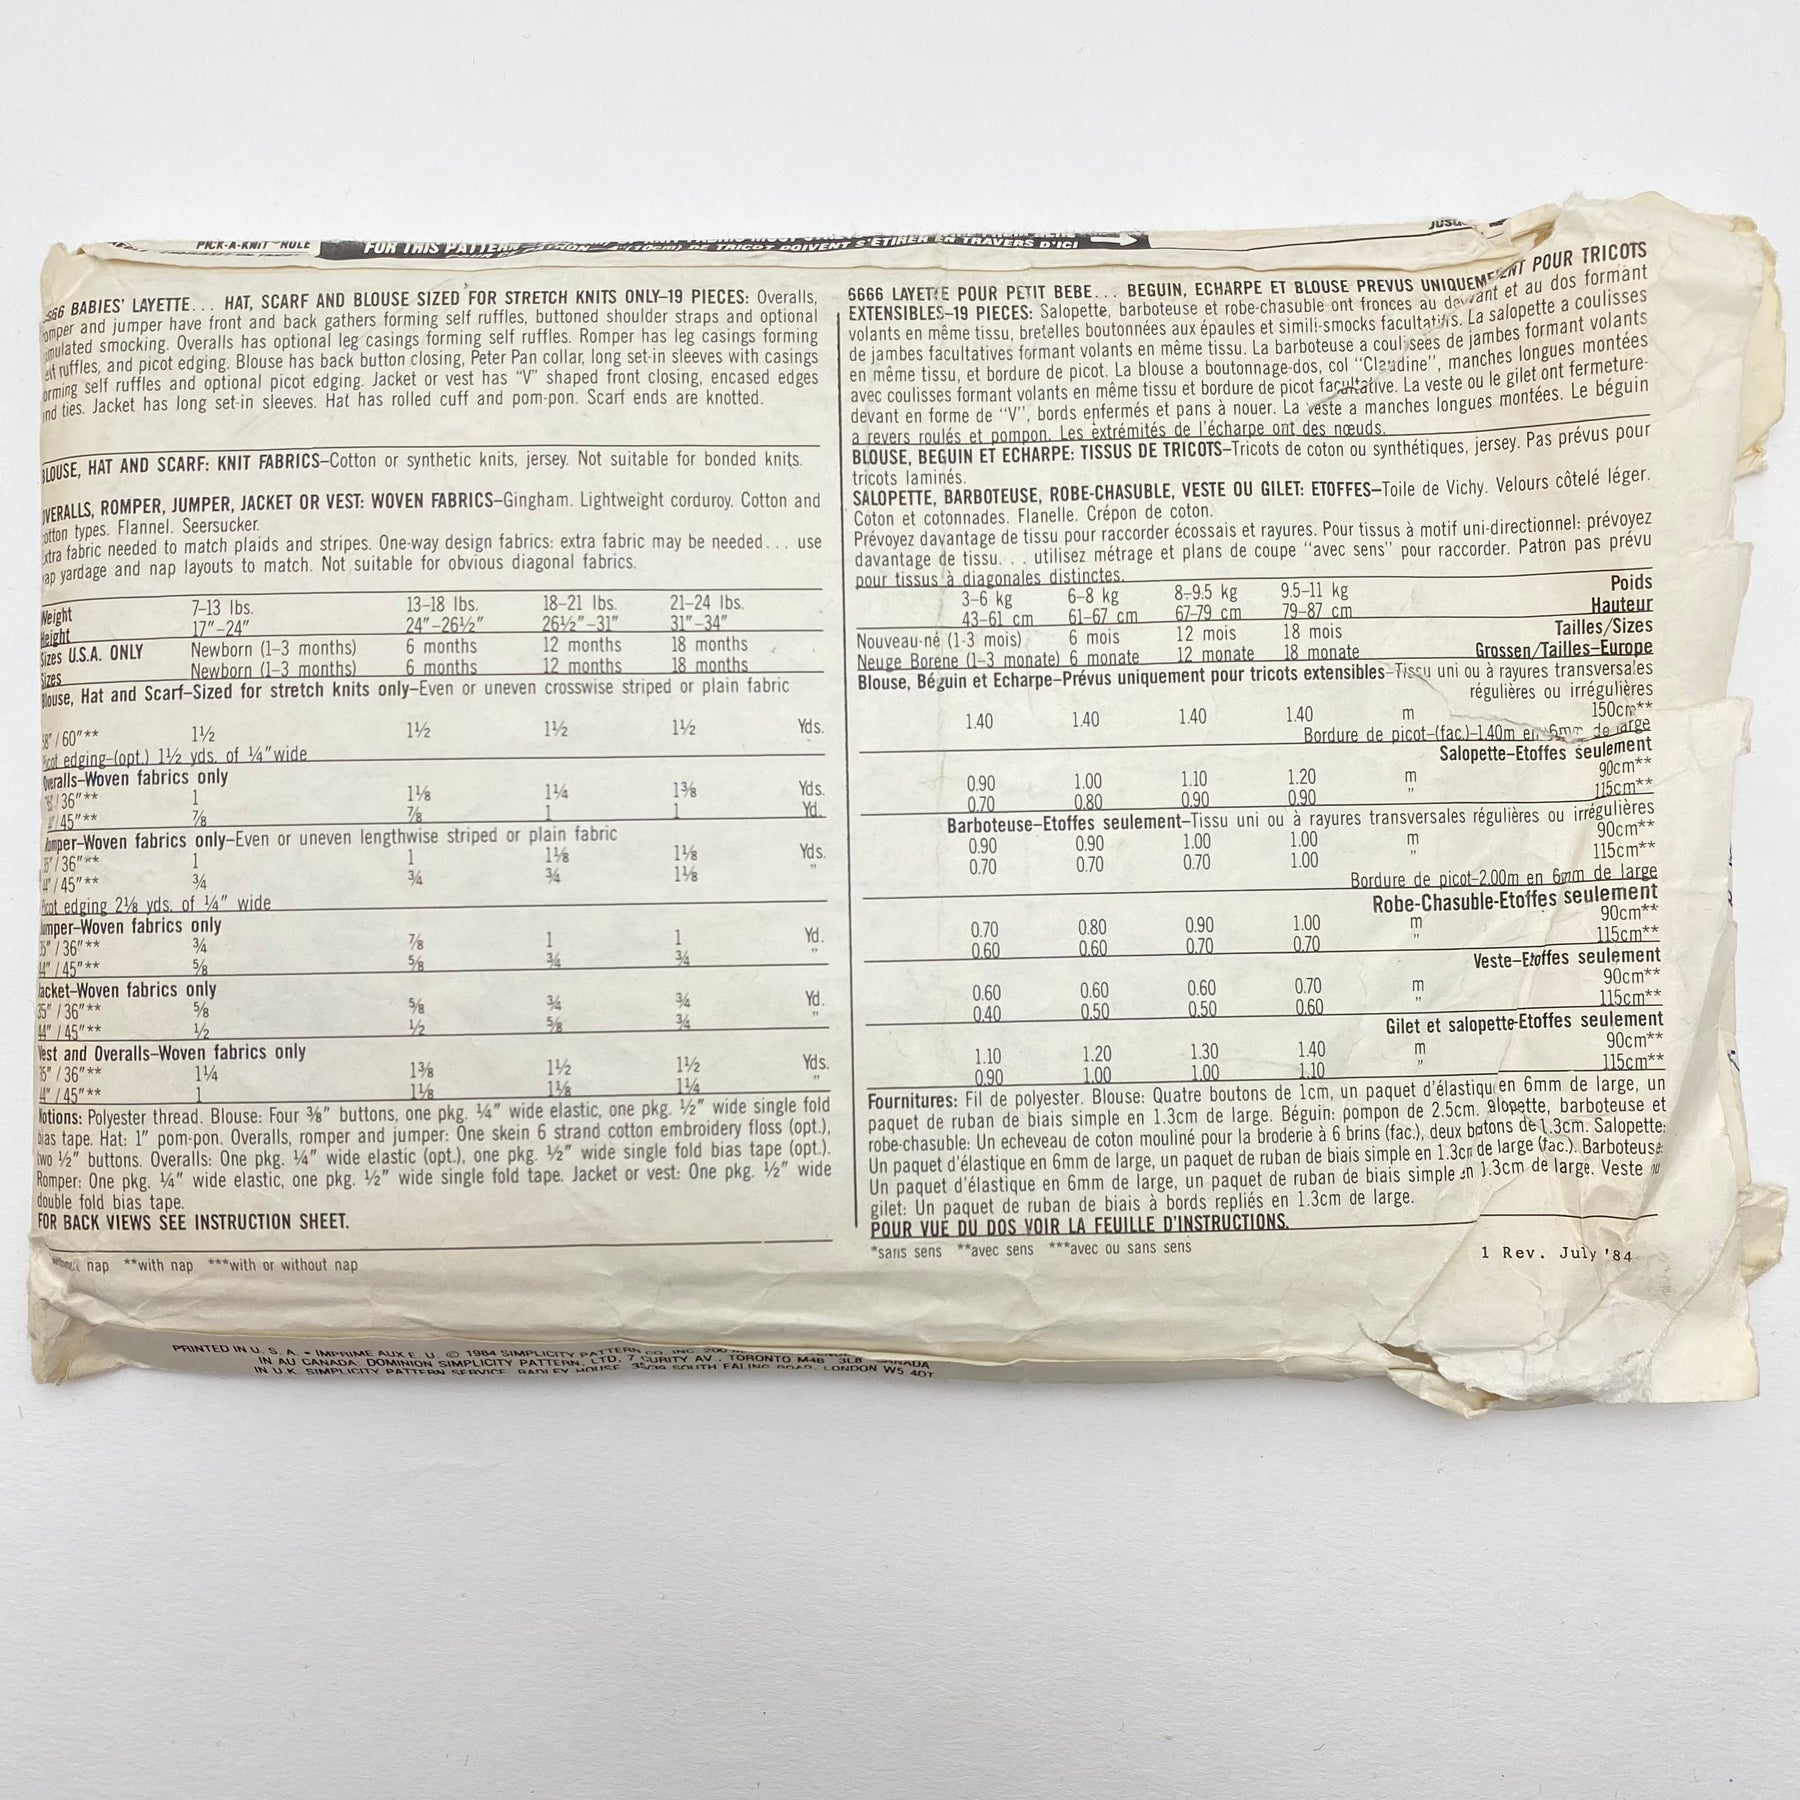 PICK-A-KNIT RULE
FOR THIS PATTERN
DOIVENT S'ETIRER EN TRAVERS D'ICI
BABIES' LAYETTE... HAT, SCARF AND BLOUSE SIZED FOR STRETCH KNITS ONLY–19 PIECES: Overalls,
and jumper have front and back gathers forming self ruffles, buttoned shoulder straps and optional
smocking. Overalls has optional leg casings forming self ruffles. Romper has leg casings forming
ruffles, and picot edging. Blouse has back button closing, Peter Pan collar, long set-in sleeves with casings
self ruffles and optional picot edging. Jacket or vest has "V" shaped front closing, encased edges
ties. Jacket has long set-in sleeves. Hat has rolled cuff and pom-pon. Scarf ends are knotted.
BLOUSE, HAT AND SCARF: KNIT FABRICS–Cotton or synthetic knits, jersey. Not suitable for bonded knits.
OVERALLS, ROMPER, JUMPER, JACKET OR VEST: WOVEN FABRICS–Gingham. Lightweight corduroy. Cotton and
cotton types. Flannel. Seersucker.
Extra fabric needed to match plaids and stripes. One-way design fabrics: extra fabric may be needed... use
nap yardage and nap layouts to match. Not suitable for obvious diagonal fabrics.
Weight 7–13 lbs. 13–18 lbs. 18–21 lbs. 21–24 lbs.
Height 17"–24" 24"–26½" 26½"–31" 31"–34"
Sizes U.S.A. ONLY Newborn (1–3 months) 6 months 12 months 18 months
Sizes Newborn (1–3 months) 6 months 12 months 18 months
Blouse, Hat and Scarf–Sized for stretch knits only–Even or uneven crosswise striped or plain fabric
58"/60"** 1½ 1½ 1½ 1½ Yds.
Picot edging–(opt.) 1½ yds. of ¼" wide
Overalls–Woven fabrics only
35"/36"** 1 1⅛ 1¼ 1⅜ Yds.
44"/45"** ⅞ ⅞ 1 1 Yd.
Romper–Woven fabrics only–Even or uneven lengthwise striped or plain fabric
35"/36"** 1 1 1⅛ 1⅛ Yds.
44"/45"** ¾ ¾ ¾ 1⅛ "
Picot edging 2⅛ yds. of ¼" wide
Jumper–Woven fabrics only
35"/36"** ¾ ⅞ 1 1 Yd.
44"/45"** ⅝ ⅝ ¾ ¾ "
Jacket–Woven fabrics only
35"/36"** ⅝ ⅝ ¾ ¾ Yd.
44"/45"** ½ ½ ⅝ ¾ "
Vest and Overalls–Woven fabrics only
35"/36"** 1¼ 1⅜ 1½ 1½ Yds.
44"/45"** 1 1⅛ 1⅛ 1¼ "
Notions: Polyester thread. Blouse: Four ⅜" buttons, one pkg. ¼" wide elastic, one pkg. ½" wide single fold
bias tape. Hat: 1" pom-pon. Overalls, romper and jumper: One skein 6 strand cotton embroidery floss (opt.),
two ½" buttons. Overalls: One pkg. ¼" wide elastic (opt.), one pkg. ½" wide single fold bias tape (opt.).
Romper: One pkg. ¼" wide elastic, one pkg. ½" wide single fold tape. Jacket or vest: One pkg. ½" wide
double fold bias tape.
FOR BACK VIEWS SEE INSTRUCTION SHEET.
nap **with nap ***with or without nap
6666 LAYETTE POUR PETIT BEBE... BEGUIN, ECHARPE ET BLOUSE PREVUS UNIQUEMENT POUR TRICOTS
EXTENSIBLES–19 PIECES: Salopette, barboteuse et robe-chasuble ont fronces au devant et au dos formant
volants en même tissu, bretelles boutonnées aux épaules et simili-smocks facultatifs. La salopette a coulisses
de jambes facultatives formant volants en même tissu. La barboteuse a coulisses de jambes formant volants
en même tissu, et bordure de picot. La blouse a boutonnage-dos, col "Claudine", manches longues montées
avec coulisses formant volants en même tissu et bordure de picot facultative. La veste ou le gilet ont fermeture-
devant en forme de "V", bords enfermés et pans à nouer. La veste a manches longues montées. Le béguin
a revers roulés et pompon. Les extrémités de l'écharpe ont des nœuds.
BLOUSE, BEGUIN ET ECHARPE: TISSUS DE TRICOTS–Tricots de coton ou synthétiques, jersey. Pas prévus pour
tricots laminés.
SALOPETTE, BARBOTEUSE, ROBE-CHASUBLE, VESTE OU GILET: ETOFFES–Toile de Vichy. Velours côtelé léger.
Coton et cotonnades. Flanelle. Crépon de coton.
Prévoyez davantage de tissu pour raccorder écossais et rayures. Pour tissus à motif uni-directionnel: prévoyez
davantage de tissu... utilisez métrage et plans de coupe "avec sens" pour raccorder. Patron pas prévu
pour tissus à diagonales distinctes.
3–6 kg 6–8 kg 8–9.5 kg 9.5–11 kg Poids
43–61 cm 61–67 cm 67–79 cm 79–87 cm Hauteur
Nouveau-né (1-3 mois) 6 mois 12 mois 18 mois Tailles/Sizes
Neuge Borene (1–3 monate) 6 monate 12 monate 18 monate Grossen/Tailles–Europe
Blouse, Béguin et Echarpe–Prévus uniquement pour tricots extensibles–Tissu uni ou à rayures transversales
régulières ou irrégulières
1.40 1.40 1.40 1.40 m 150cm**
Bordure de picot–(fac.)–1.40m en 6mm de large
Salopette–Etoffes seulement
0.90 1.00 1.10 1.20 m 90cm**
0.70 0.80 0.90 0.90 " 115cm**
Barboteuse–Etoffes seulement–Tissu uni ou à rayures transversales régulières ou irrégulières
0.90 0.90 1.00 1.00 m 90cm**
0.70 0.70 0.70 1.00 " 115cm**
Bordure de picot–2.00m en 6mm de large
Robe-Chasuble-Etoffes seulement
0.70 0.80 0.90 1.00 m 90cm**
0.60 0.60 0.70 0.70 " 115cm**
Veste–Etoffes seulement
0.60 0.60 0.60 0.70 m 90cm**
0.40 0.50 0.50 0.60 " 115cm**
Gilet et salopette-Etoffes seulement
1.10 1.20 1.30 1.40 m 90cm**
0.90 1.00 1.00 1.10 " 115cm**
Fournitures: Fil de polyester. Blouse: Quatre boutons de 1cm, un paquet d'élastique en 6mm de large, un
paquet de ruban de biais simple en 1.3cm de large. Béguin: pompon de 2.5cm. Salopette, barboteuse et
robe-chasuble: Un echeveau de coton mouliné pour la broderie à 6 brins (fac.), deux boutons de 1.3cm. Salopette:
Un paquet d'élastique en 6mm de large, un paquet de ruban de biais simple en 1.3cm de large (fac.). Barboteuse:
Un paquet d'élastique en 6mm de large, un paquet de ruban de biais simple en 1.3cm de large. Veste ou
gilet: Un paquet de ruban de biais à bords repliés en 1.3cm de large.
POUR VUE DU DOS VOIR LA FEUILLE D'INSTRUCTIONS.
*sans sens **avec sens ***avec ou sans sens
1 Rev. July '84
PRINTED IN U. S. A. - IMPRIME AUX E. U. © 1984 SIMPLICITY PATTERN CO. INC. 200
IN AU CANADA: DOMINION SIMPLICITY PATTERN, LTD. 7 CURITY AV., TORONTO M4B 3L8 CANADA
IN U.K. SIMPLICITY PATTERN SERVICE RADLEY HOUSE 35/39 SOUTH EALING ROAD, LONDON W5 4QT